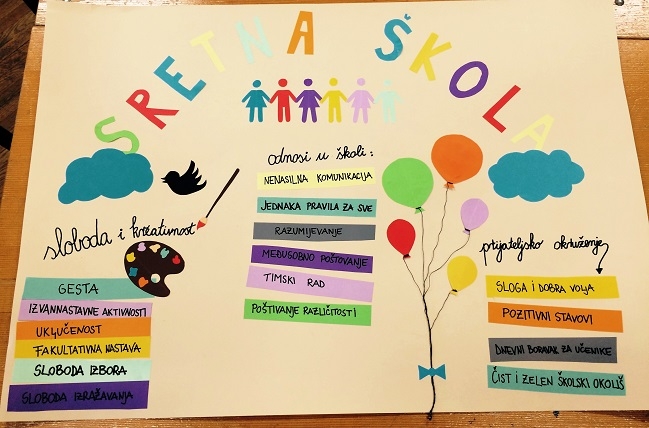 SRETNA ŠKOLA
sloboda i kreativnost
GESTA
IZVANNASTAVNE AKTIVNOSTI
UKLJUČENOST
FAKULTATIVNA NASTAVA
SLOBODA IZBORA
SLOBODA IZRAŽAVANJA
odnosi u školi:
NENASILNA KOMUNIKACIJA
JEDNAKA PRAVILA ZA SVE
RAZUMIJEVANJE
MEĐUSOBNO POŠTOVANJE
TIMSKI RAD
POŠTIVANJE RAZLIČITOSTI
prijateljsko okruženje
SLOGA I DOBRA VOLJA
POZITIVNI STAVOVI
DNEVNI BORAVAK ZA UČENIKE
ČIST I ZELEN ŠKOLSKI OKOLIŠ